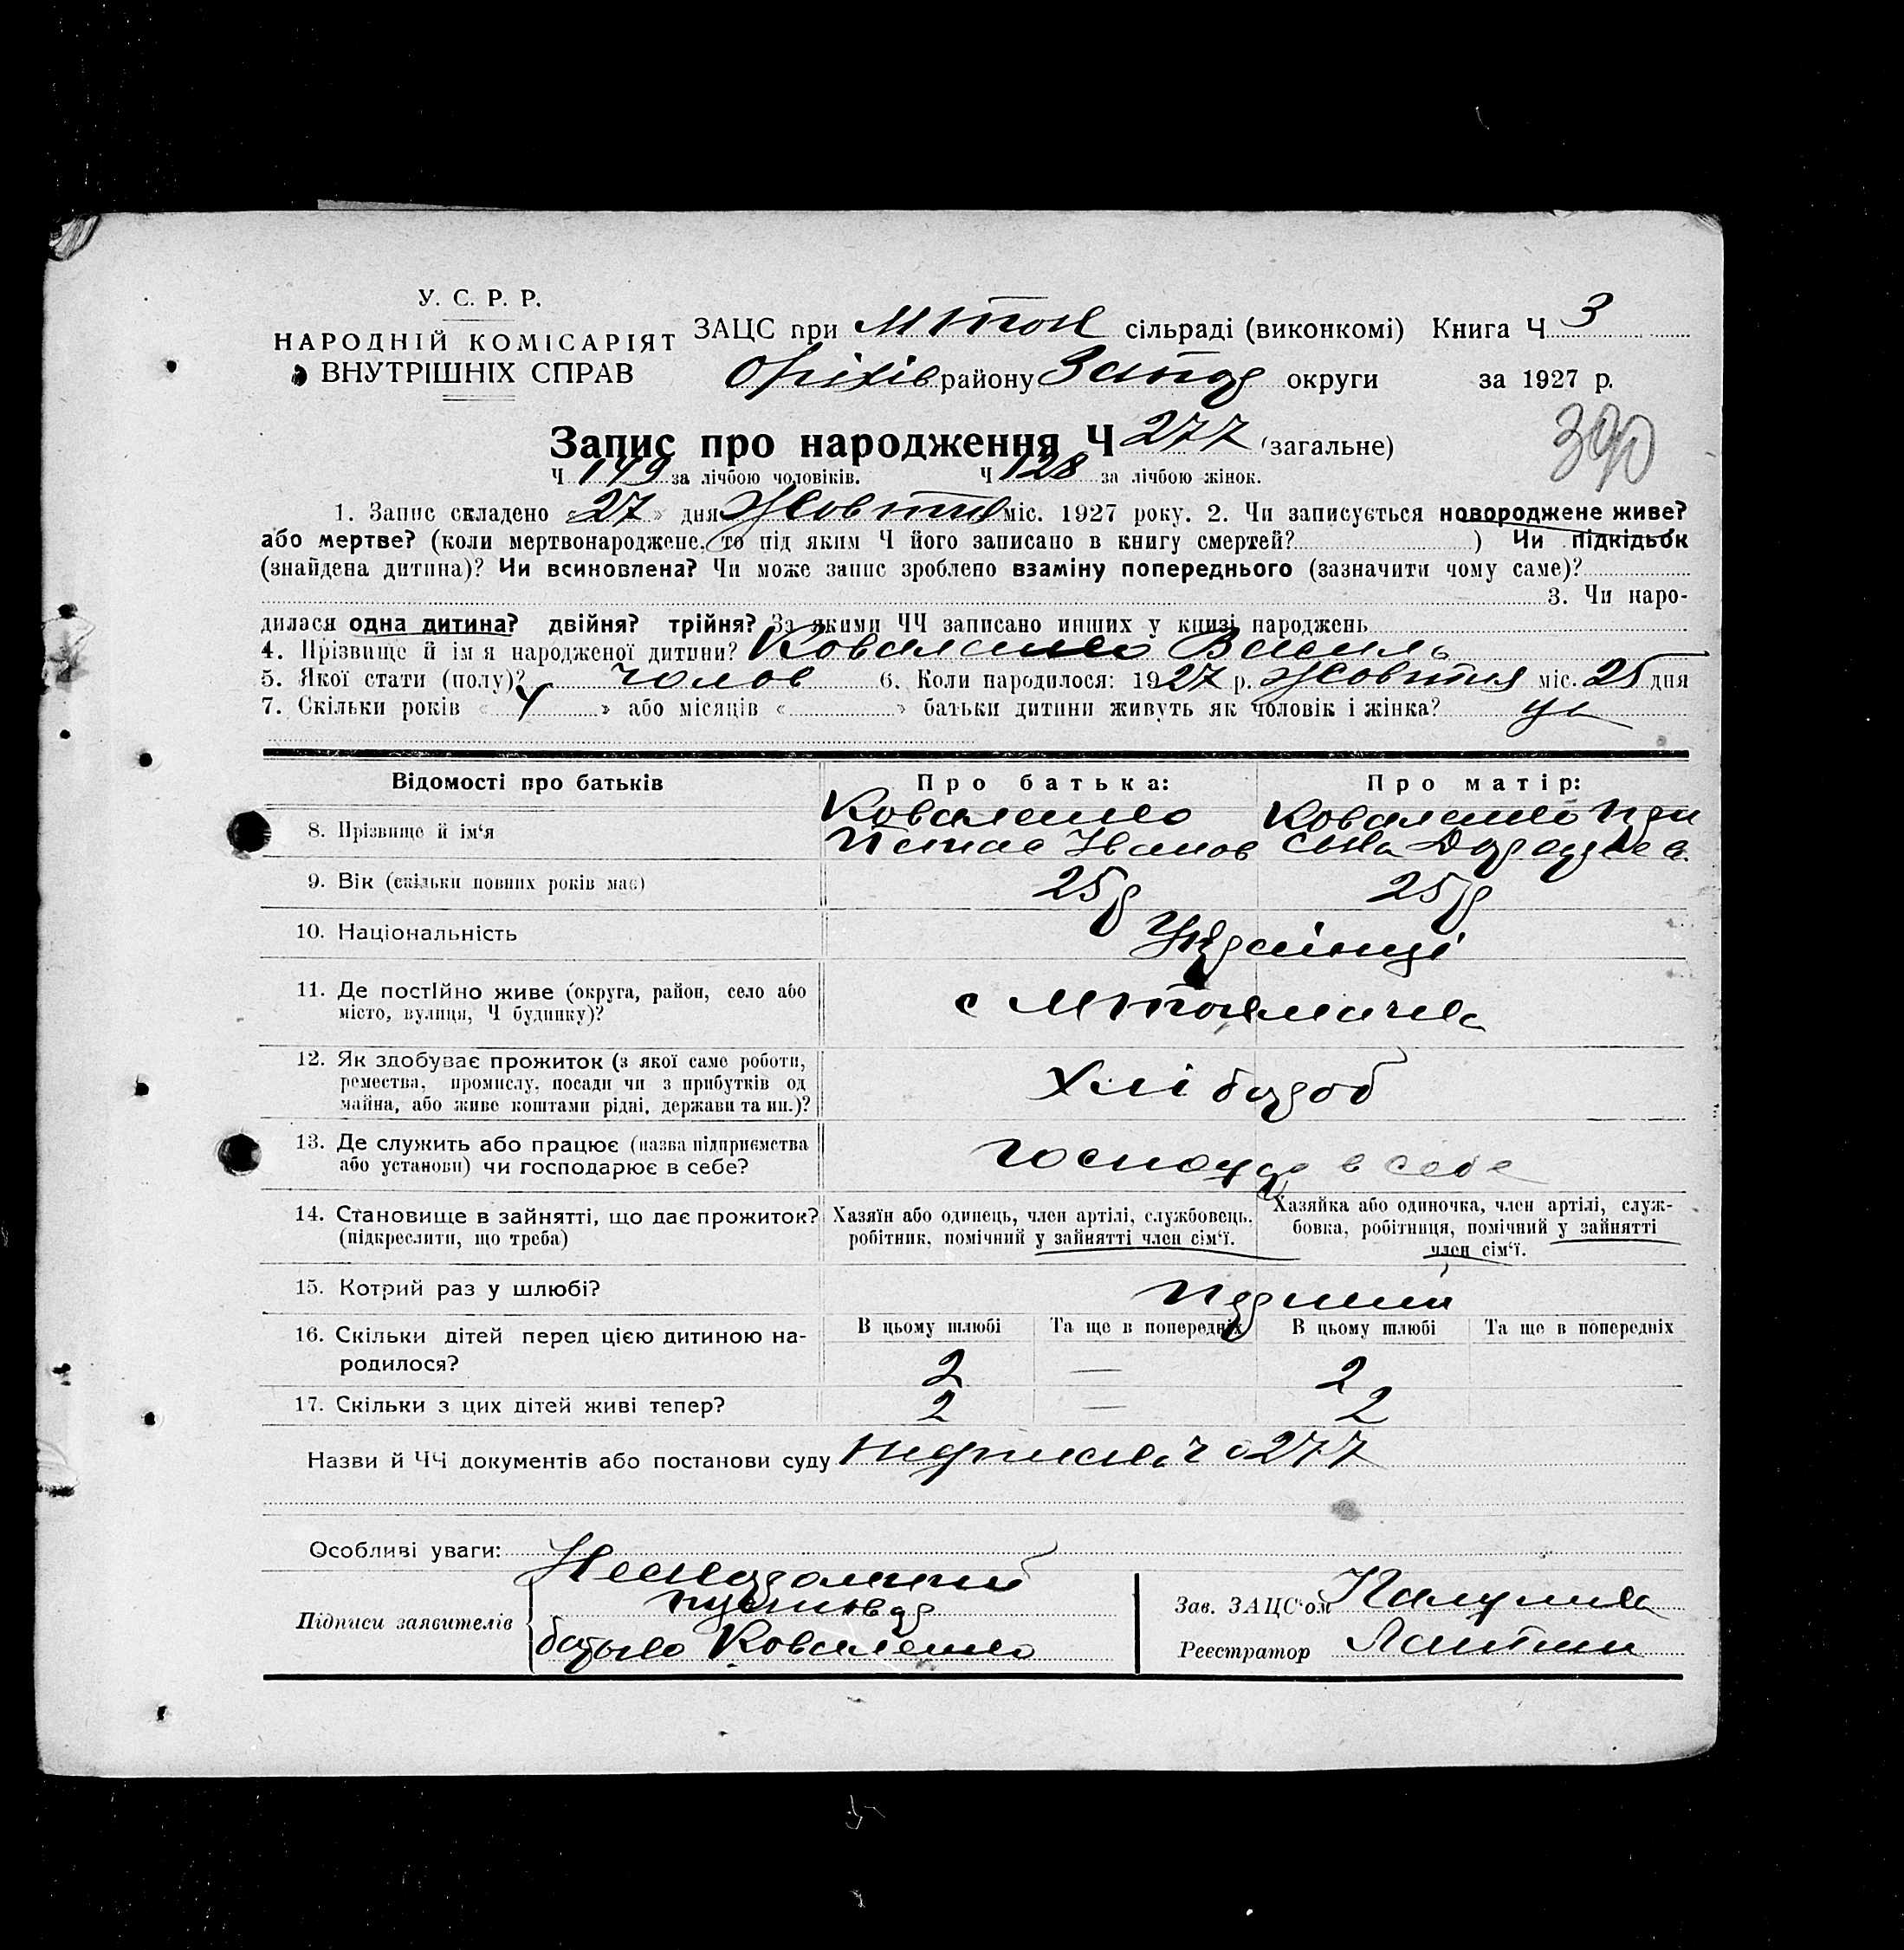 У. С. Р. Р.
НАРОДНІЙ КОМІСАРІЯТ
ВНУТРІШНІХ СПРАВ
ЗАЦС при МТок сільраді (виконкомі) Книга Ч 3
Оріхів району Запор округи за 1927 р.
390
Запис про народження Ч 277 (загальне)
Ч 149 за лічбою чоловіків. Ч 128 за лічбою жінок.
1. Запис складено «27» дня Жовтня міс. 1927 року. 2. Чи записується новороджене живе?
або мертве? (коли мертвонароджене, то під яким Ч його записано в книгу смертей? ) Чи підкідьок
(знайдена дитина)? Чи всиновлена? Чи може запис зроблено взаміну попереднього (зазначити чому саме)?
3. Чи наро-
дилася одна дитина? двійня? трійня? За якими ЧЧ записано инших у книзі народжень
4. Прізвище й ім'я народженої дитини? Коваленко Василь
5. Якої стати (полу)? чолов 6. Коли народилося: 1927 р. Жовтня міс. 25 дня
7. Скільки років « 4 » або місяців « » батьки дитини живуть як чоловік і жінка?
Відомості про батьків Про батька: Про матір:
8. Прізвище й ім'я Коваленко Коваленко При
Іванов ська
9. Вік (скільки повних років має) 25р 25р
10. Національність Українці
11. Де постійно живе (округа, район, село або
місто, вулиця, Ч будинку)? с МТокмачка
12. Як здобуває прожиток (з якої саме роботи,
ремества, промислу, посади чи з прибутків од
майна, або живе коштами рідні, держави та ин.)? Хлібороб
13. Де служить або працює (назва підприємства
або установи) чи господарює в себе? господар в себе
14. Становище в зайнятті, що дає прожиток?
(підкреслити, що треба)
Хазяїн або одинець, член артілі, службовець,
робітник, помічний у зайнятті член сім'ї.
Хазяйка або одиночка, член артілі, служ-
бовка, робітниця, помічний у зайнятті
член сім'ї.
15. Котрий раз у шлюбі? перший
16. Скільки дітей перед цією дитиною на-
родилося?
В цьому шлюбі Та ще в попередніх В цьому шлюбі Та ще в попередніх
2 — 2
17. Скільки з цих дітей живі тепер? 2 — 2
Назви й ЧЧ документів або постанови суду 277
Особливі уваги:
Підписи заявителів
батько Коваленко
Зав. ЗАЦС'ом
Реєстратор